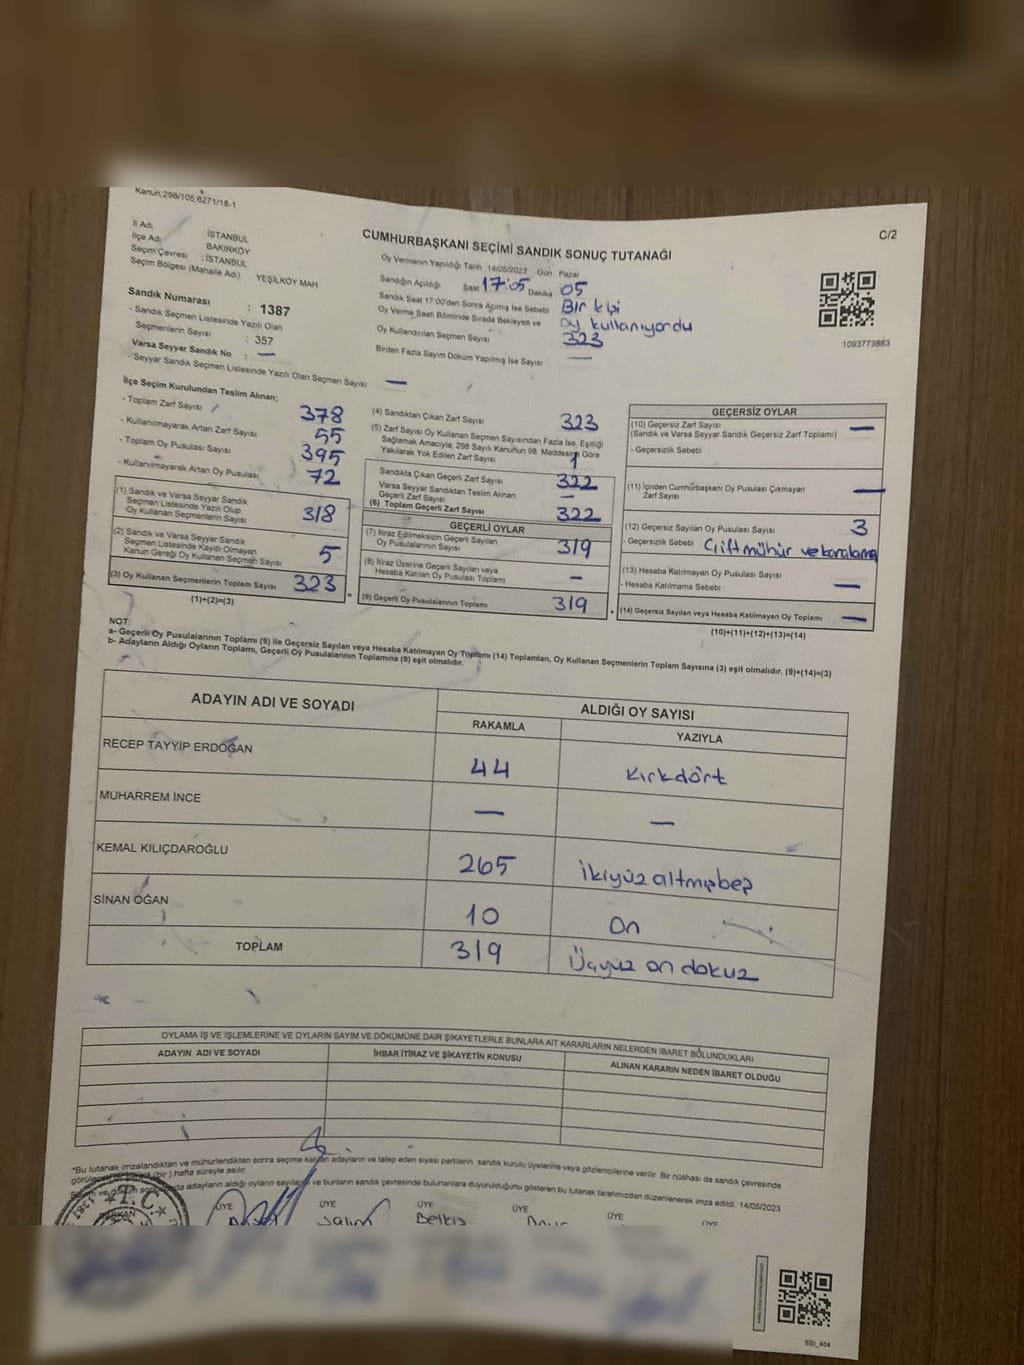 Kanun 298/105,6271/18-1
C/2
CUMHURBAŞKANI SEÇİMİ SANDIK SONUÇ TUTANAĞI
İl Adı : İSTANBUL
İlçe Adı : BAKIRKÖY
Seçim Çevresi : İSTANBUL
Seçim Bölgesi (Mahalle Adı) YEŞİLKÖY MAH.
Sandık Numarası : 1387
- Sandık Seçmen Listesinde Yazılı Olan
Seçmenlerin Sayısı : 357
Varsa Seyyar Sandık No : —
- Seyyar Sandık Seçmen Listesinde Yazılı Olan Seçmen Sayısı: —
Oy Vermenin Yapıldığı Tarih 14/05/2023 Gün Pazar
Sandığın Açıldığı Saat 17:05 Dakika 05
Sandık Saat 17:00'den Sonra Açılmış İse Sebebi Bir kişi
Oy Verme Saati Bitiminde Sırada Bekleyen ve oy kullanıyordu
Oy Kullandırılan Seçmen Sayısı 323
Birden Fazla Sayım Döküm Yapılmış İse Sayısı —
1093773883
İlçe Seçim Kurulundan Teslim Alınan;
- Toplam Zarf Sayısı 378
- Kullanılmayarak Artan Zarf Sayısı 55
- Toplam Oy Pusulası Sayısı 395
- Kullanılmayarak Artan Oy Pusulası 72
(1) Sandık ve Varsa Seyyar Sandık
Seçmen Listesinde Yazılı Olup
Oy Kullanan Seçmenlerin Sayısı 318
(2) Sandık ve Varsa Seyyar Sandık
Seçmen Listesinde Kayıtlı Olmayan
Kanun Gereği Oy Kullanan Seçmen Sayısı 5
(3) Oy Kullanan Seçmenlerin Toplam Sayısı 323
(1)+(2)=(3)
(4) Sandıktan Çıkan Zarf Sayısı 323
(5) Zarf Sayısı Oy Kullanan Seçmen Sayısından Fazla İse, Eşitliği
Sağlamak Amacıyla, 298 Sayılı Kanunun 98. Maddesine Göre
Yakılarak Yok Edilen Zarf Sayısı 1
Sandıkta Çıkan Geçerli Zarf Sayısı 322
Varsa Seyyar Sandıktan Teslim Alınan
Geçerli Zarf Sayısı —
(6) Toplam Geçerli Zarf Sayısı 322
GEÇERLİ OYLAR
(7) İtiraz Edilmeksizin Geçerli Sayılan
Oy Pusulalarının Sayısı 319
(8) İtiraz Üzerine Geçerli Sayılan veya
Hesaba Katılan Oy Pusulaları Toplamı —
(9) Geçerli Oy Pusulalarının Toplamı 319
GEÇERSİZ OYLAR
(10) Geçersiz Zarf Sayısı —
(Sandık ve Varsa Seyyar Sandık Geçersiz Zarf Toplamı)
- Geçersizlik Sebebi
(11) İçinden Cumhurbaşkanı Oy Pusulası Çıkmayan
Zarf Sayısı —
(12) Geçersiz Sayılan Oy Pusulası Sayısı 3
- Geçersizlik Sebebi Çift mühür ve karalama
(13) Hesaba Katılmayan Oy Pusulası Sayısı
- Hesaba Katılmama Sebebi —
(14) Geçersiz Sayılan veya Hesaba Katılmayan Oy Toplamı —
(10)+(11)+(12)+(13)=(14)
NOT:
a- Geçerli Oy Pusulalarının Toplamı (9) ile Geçersiz Sayılan veya Hesaba Katılmayan Oy Toplamı (14) Toplamları, Oy Kullanan Seçmenlerin Toplam Sayısına (3) eşit olmalıdır. (9)+(14)=(3)
b- Adayların Aldığı Oyların Toplamı, Geçerli Oy Pusulalarının Toplamına (9) eşit olmalıdır.
ADAYIN ADI VE SOYADI ALDIĞI OY SAYISI
RAKAMLA YAZIYLA
RECEP TAYYİP ERDOĞAN 44 Kırkdört
MUHARREM İNCE — —
KEMAL KILIÇDAROĞLU 265 İkiyüz altmışbeş
SİNAN OĞAN 10 On
TOPLAM 319 Üçyüz on dokuz
OYLAMA İŞ VE İŞLEMLERİNE VE OYLARIN SAYIM VE DÖKÜMÜNE DAİR ŞİKAYETLERLE BUNLARA AİT KARARLARIN NELERDEN İBARET BULUNDUKLARI
ADAYIN ADI VE SOYADI İHBAR İTİRAZ VE ŞİKAYETİN KONUSU ALINAN KARARIN NEDEN İBARET OLDUĞU
*Bu tutanak imzalandıktan ve mühürlendikten sonra seçime katılan adayların ve talep eden siyasi partilerin sandık kurulu üyelerine veya gözlemcilerine verilir. Bir nüshası da sandık çevresinde
(bir) hafta süreyle asılır.
adayların aldığı oyların sayılarını ve bunların sandık çevresinde bulunanlara duyurulduğunu gösteren bu tutanak tarafımızdan düzenlenerek imza edildi. 14/05/2023
T.C.
ÜYE ÜYE ÜYE ÜYE ÜYE ÜYE
Belkıs
SSI_404